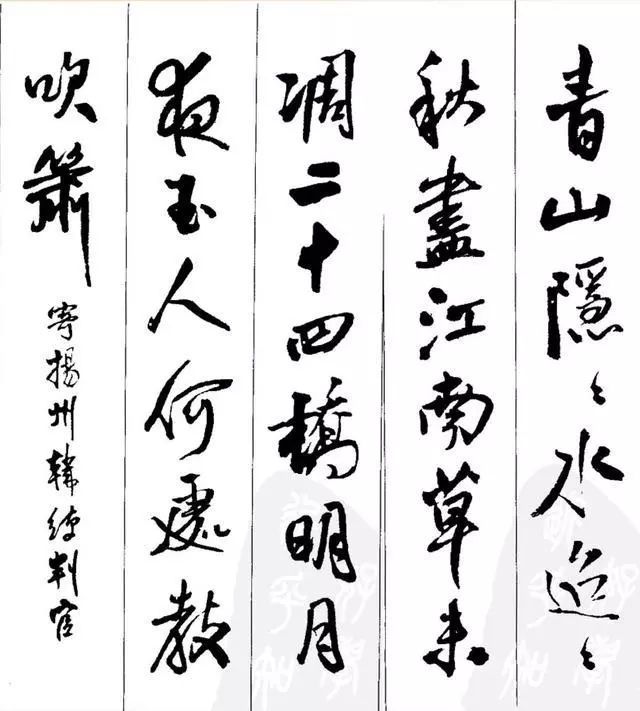 青山隱〻水迢〻
秋盡江南草未
凋二十四橋明月
夜玉人何處教
吹簫
寄揚州韓綽判官